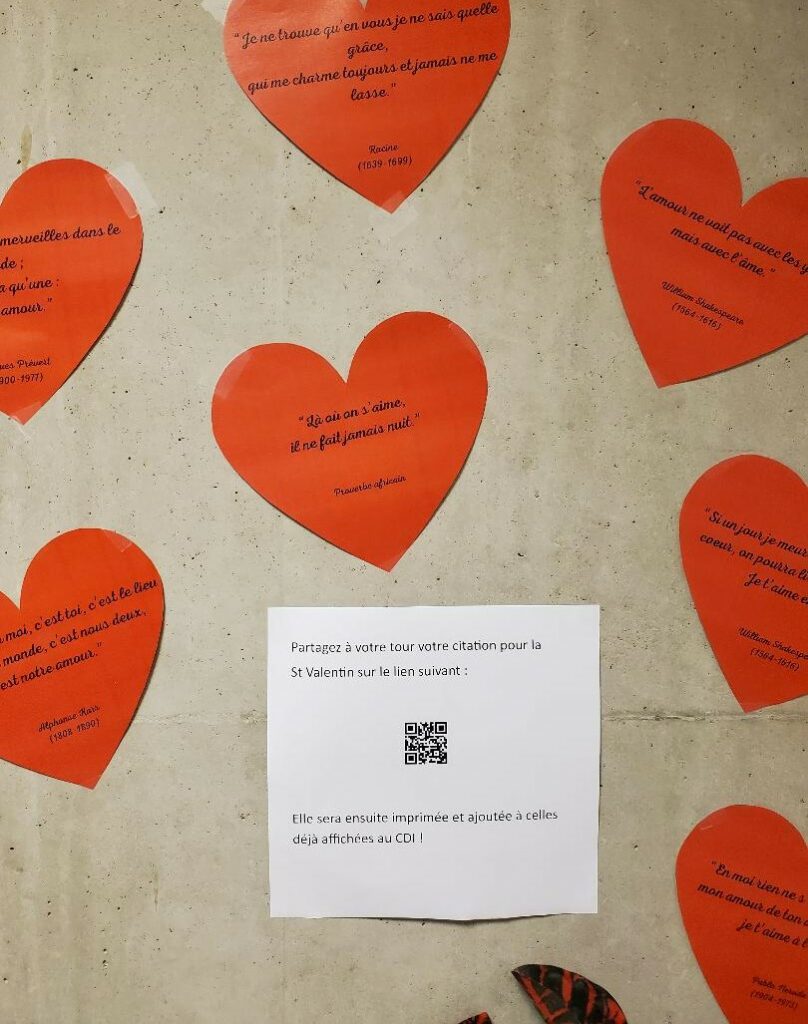 "Je ne trouve qu'en vous je ne sais quelle
grâce,
qui me charme toujours et jamais ne me
lasse."
Racine
(1639-1699)
"L'amour ne voit pas avec les
mais avec l'âme."
William Shakespeare
(1564-1616)
merveilles dans le
qu'une :
amour."
Prévert
-1977)
"Là où on s'aime,
il ne fait jamais nuit."
Proverbe africain
"Si un jour je
coeur, on pourra
Je t'aime
William
(1564-1616)
moi, c'est toi, c'est le lieu
monde, c'est nous deux,
est notre amour."
Alphonse Karr
(1808-1890)
Partagez à votre tour votre citation pour la
St Valentin sur le lien suivant :
Elle sera ensuite imprimée et ajoutée à celles
déjà affichées au CDI !
"En moi rien ne
mon amour de ton
je t'aime à
Pablo Neruda
(1904-1973)